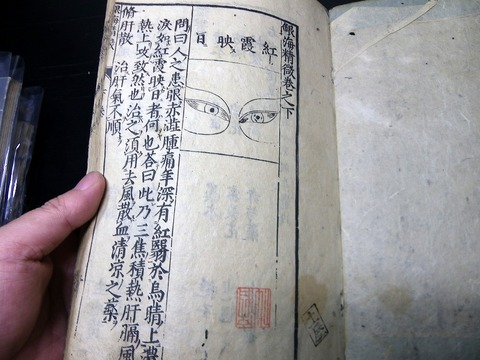 銀海精微卷之下
紅霞映日
問曰人之患眼赤澁腫痛年深有紅翳於烏睛上濃
淚如紅霞映日者何也答曰此乃三焦積熱肝膈風
熱上攻致然也治之須用去風散血清凉之藥
脩肝散 治肝氣不順